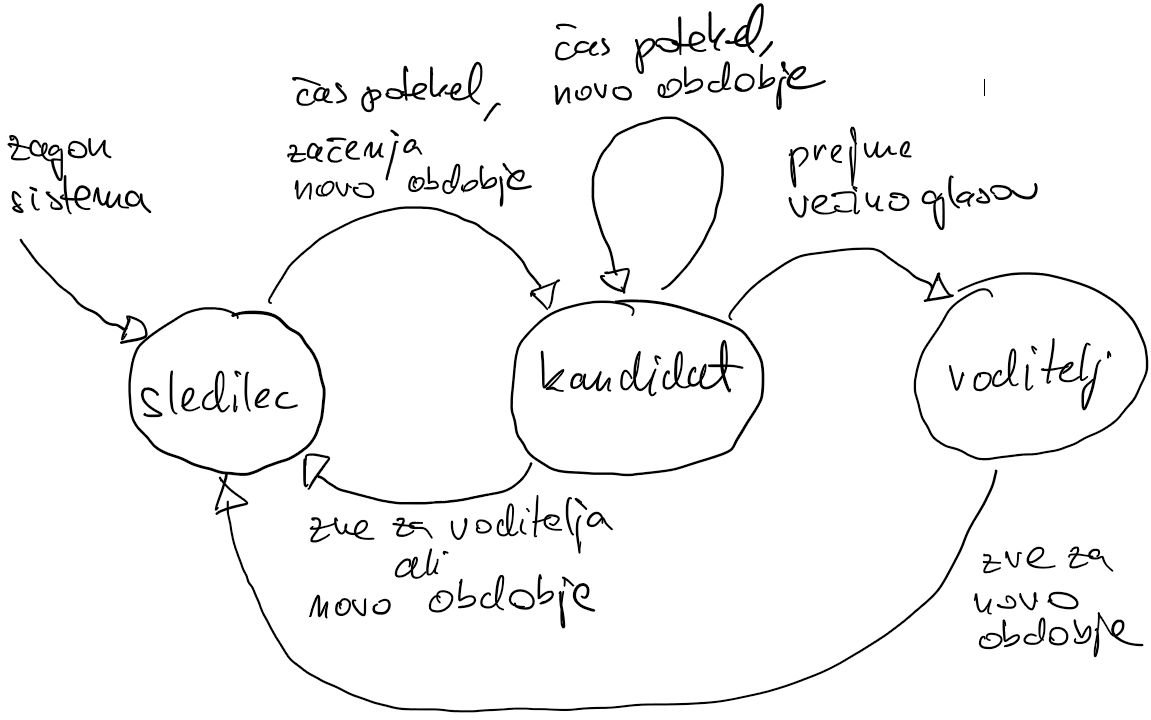 zagon
sistema
čas potekel,
začenja
novo obdobje
čas potekel,
novo obdobje
prejme
večino glasov
sledilec
kandidat
voditelj
zve za voditelja
ali
novo obdobje
zve za
novo
obdobje